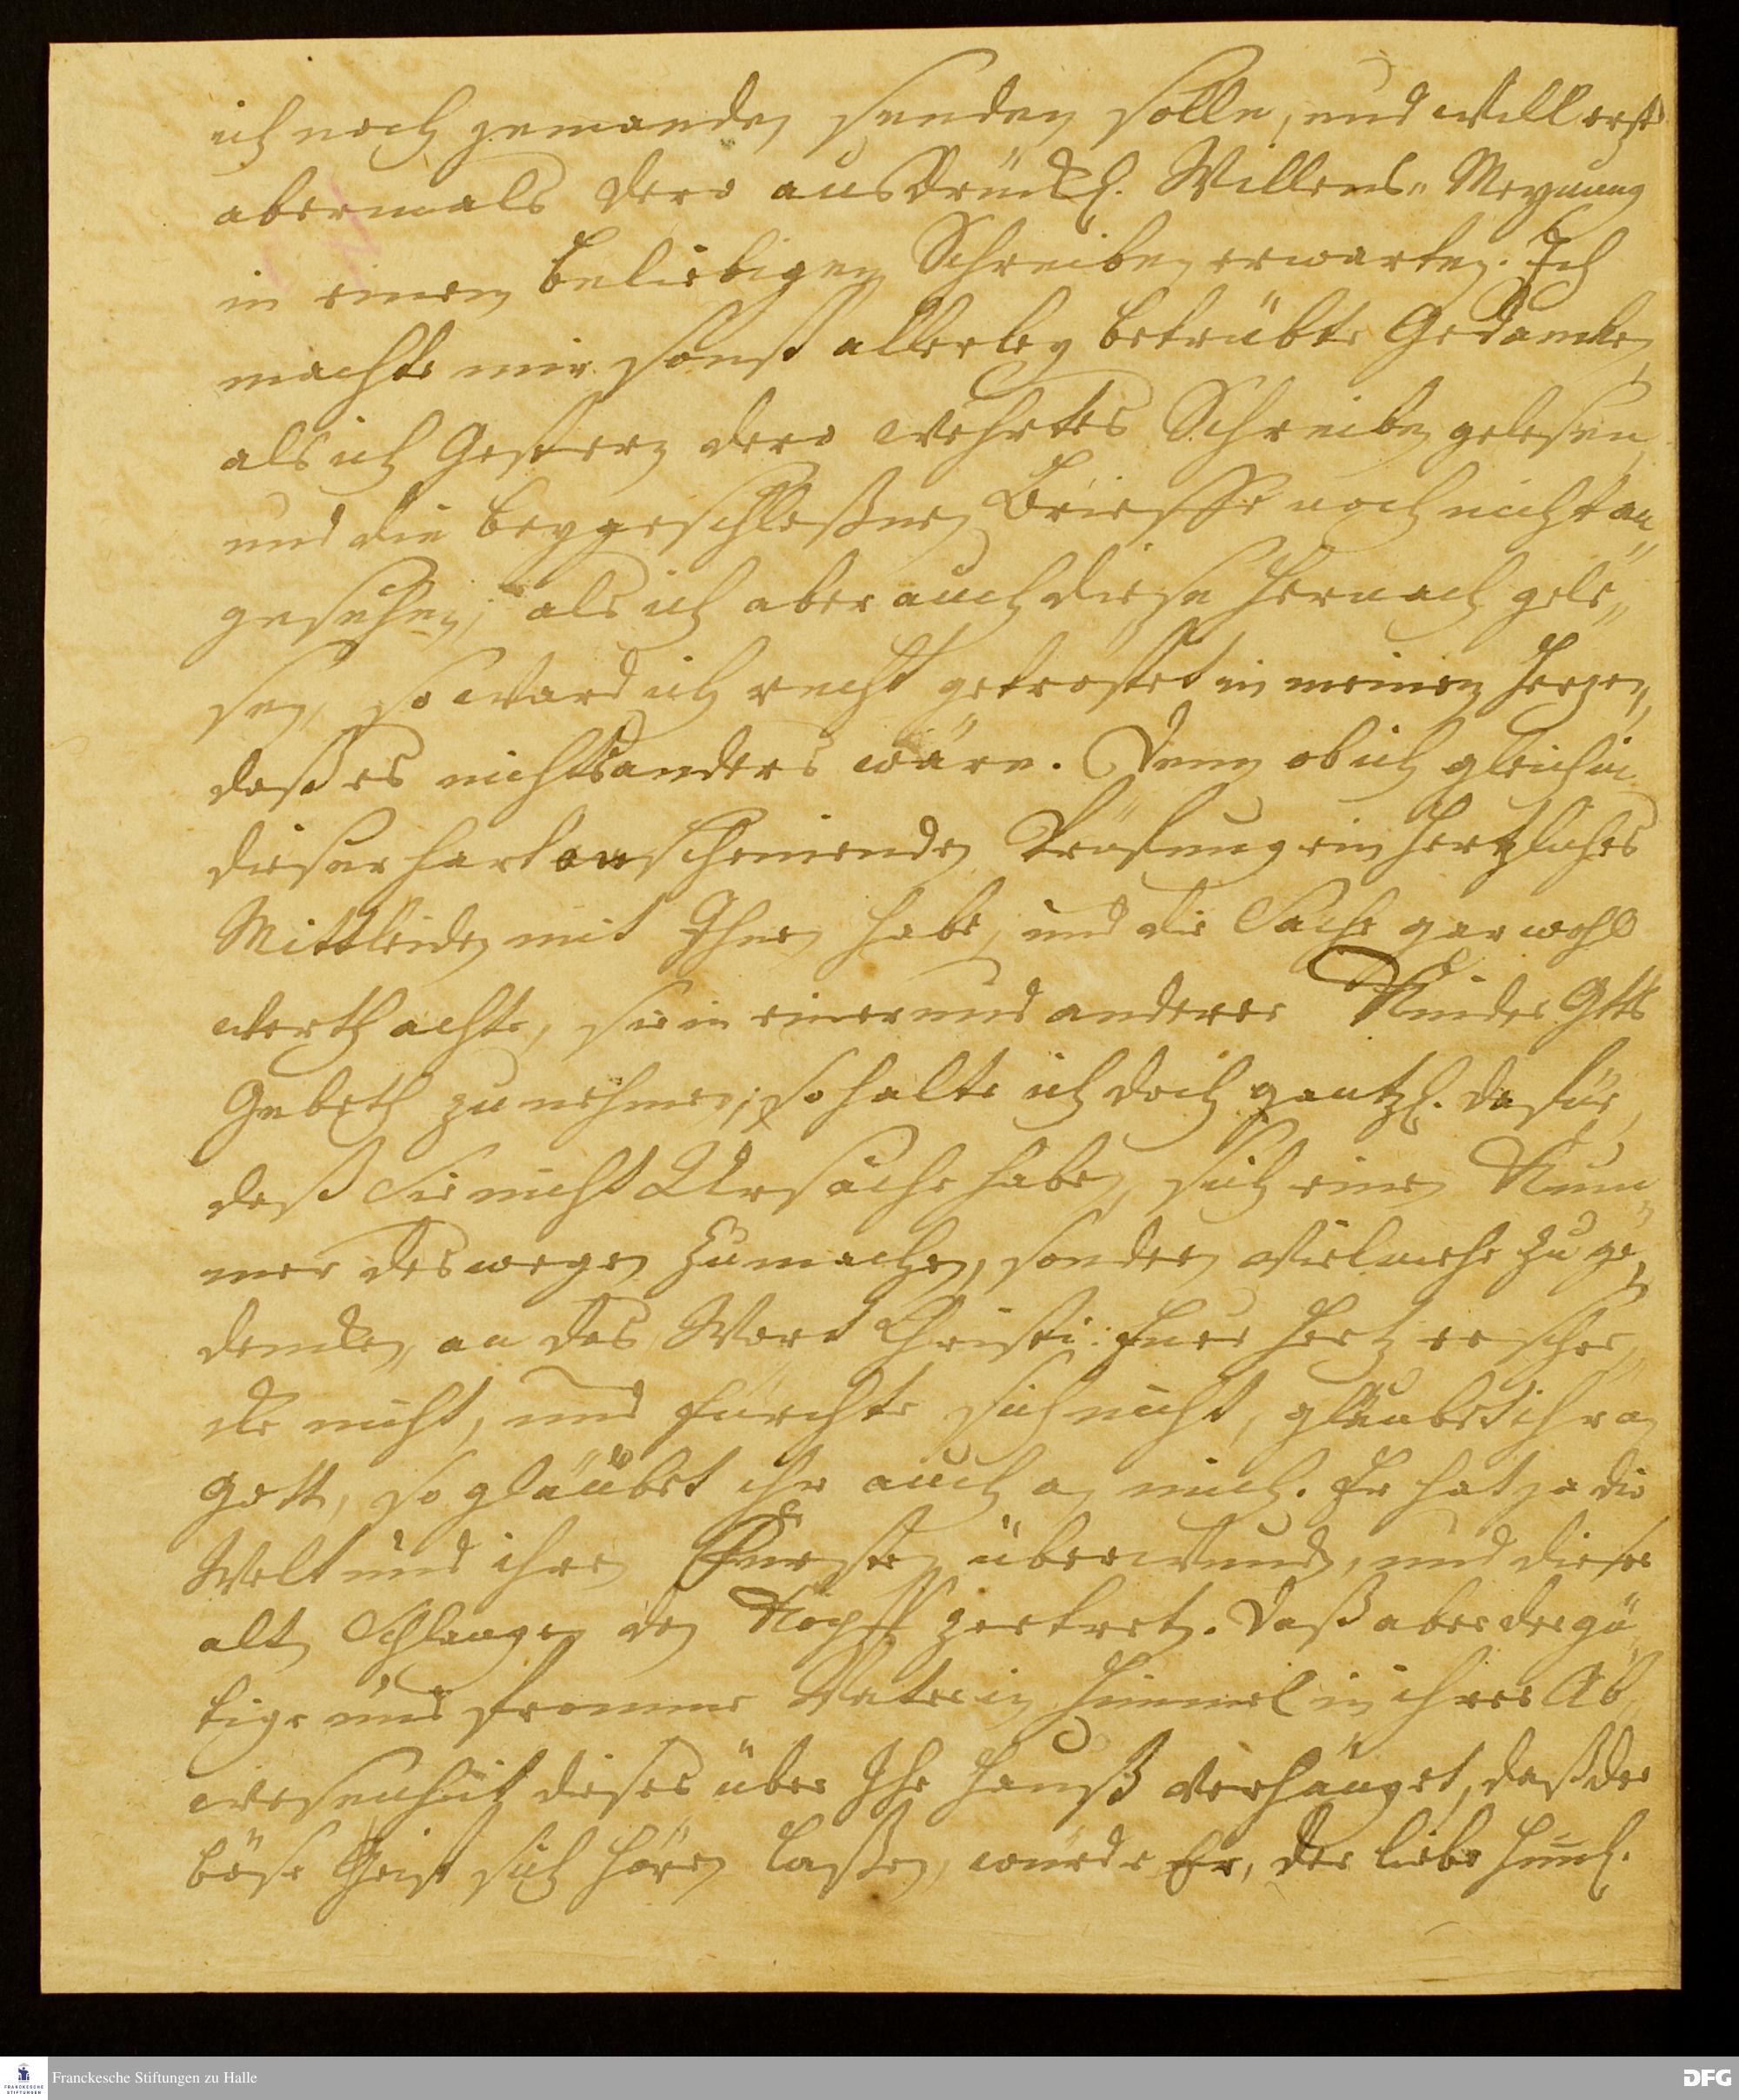 ich noch jemanden senden solle, und will erst
abermals dero ausdrückl. Willens-Meynung
in einem beliebigen Schreiben erwarten. Ich
machte mir sonst allerley betrübte Gedancken,
als ich gestern dero wehrtes Schreiben gelesen,
und die beygeschloßnen Brieffe noch nicht an-
gesehen; als ich aber auch diese hernach gele-
sen, so ward ich recht getröstet in meinem Herzen,
daß es nichts anders wäre. Denn ob ich gleich in
dieser hart anscheinenden Prüfung ein hertzliches
Mittleiden mit Ihnen habe, und die Sache gar wohl
werth achte, sie in einer und anderer Kinder Gotts
Gebeth zu nehmen; so halte ich doch gäntzl. dafür,
daß Sie nicht Ursache haben, sich einen Kum-
mer deswegen zu machen, sondern vielmehr zu ge-
dencken, an das Wort Christi: Euer Hertz erschre-
cke nicht, und fürchte sich nicht, gläubet ihr an
Gott, so gläubet ihr auch an mich. Er hat ja die
Welt und ihren Fürsten überwunden, und dieser
alten Schlangen den Kopff zertreten. Daß aber der gü-
tige und fromme Vater im Himmel in ihrer Ab-
wesenheit dieses über Ihr Hauß verhänget, daß der
böse Geist sich hören laßen, würde Er, der liebe himl.
Franckesche Stiftungen zu Halle
FRANCKESCHE STIFTUNGEN
DFG